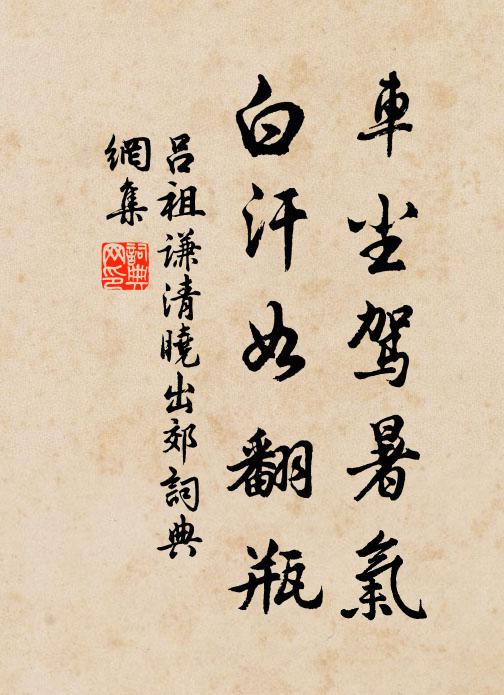 車尘駕暑氣
白汗如翻瓶
呂祖謙清曉出郊詞典
網集
詞典
网印